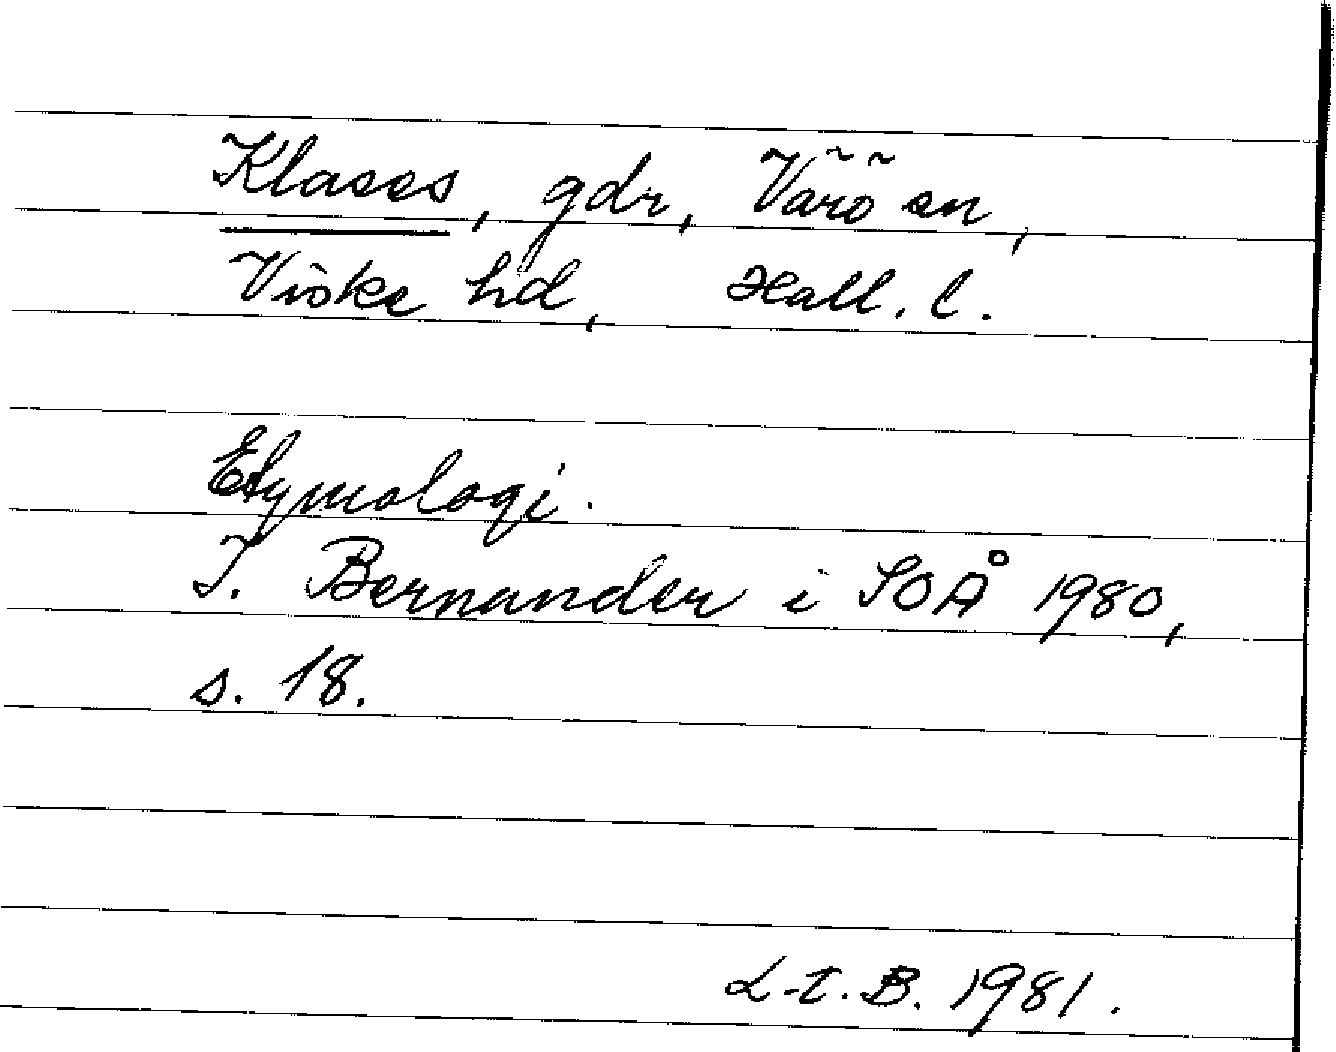 Klases, gdr, Värö sn,
Viske hd, Hall. l.
Etymologi.
I. Bernander i SOÅ 1980,
s. 18.
L-I.B. 1981.